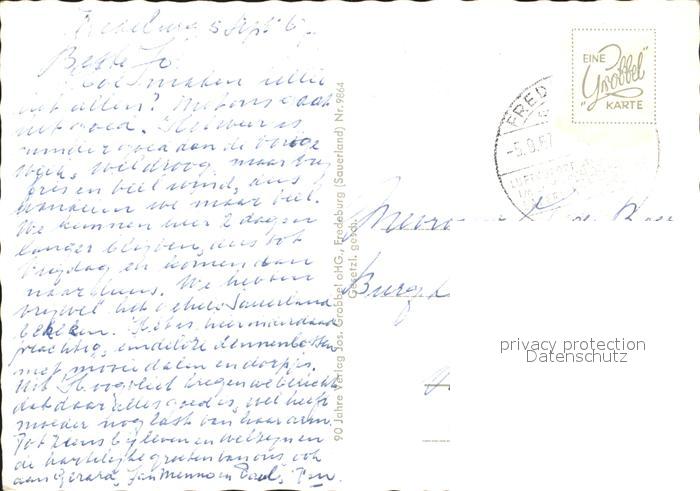 Fredeburg 5 Sept 67.
Beste Jo.
Hoe maken jullie
het allen? Met ons gaat
het goed. Het weer is
minder goed dan de vorige
week, wel droog, maar vrij
fris en veel wind, dus
wandelen we maar veel.
We kunnen hier 2 dagen
langer blijven, dus tot
vrijdag en komen dan
naar huis. We hebben
vrijwel het gehele Sauerland
bekeken. Het is hier inderdaad
prachtig, eindeloze dennenbossen
met mooie dalen en dorpjes.
Uit kregen we bericht
dat daar alles goed is, wel heeft
moeder nog last van haar arm.
Tot ziens bij leven en welzijn en
de hartelijke groeten van ons ook
aan Gerard, Jan Menno en Paul,
90 Jahre Verlag Jos. Grobbel oHG., Fredeburg (Sauerland) Nr. 9864
Gesetzl. gesch.
EINE
"Grobbel"
KARTE
FRED
-5.9.67
Mevrouw
Burgd
privacy protection
Datenschutz